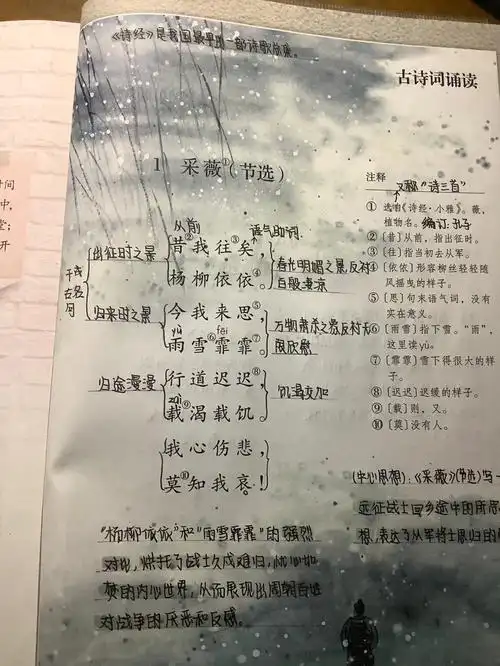 《诗经》是我国最早的一部诗歌总集。
古诗词诵读
1 采薇①(节选)
从前
语气助词
昔②我往③矣,
杨柳依依④。
出征时之景
春光明媚之景反衬
自身凄凉
千古名句
今我来思⑤,
yù fēi
雨雪⑥霏霏⑦。
归来时之景
万物肃杀之景反衬
欣慰
行道迟迟⑧,
zài
载⑨渴载饥。
归途漫漫
饥渴交加
我心伤悲,
莫⑩知我哀!
注释
又称"诗三百"
① 选自《诗经·小雅》。薇,
植物名。 编订:孔子
② 〔昔〕从前,指出征时。
③ 〔往〕指当初去从军。
④ 〔依依〕形容柳丝轻轻随
风摇曳的样子。
⑤ 〔思〕句末语气词,没有
实在意义。
⑥ 〔雨雪〕指下雪。"雨",
这里读yù。
⑦ 〔霏霏〕雪下得很大的样
子。
⑧ 〔迟迟〕迟缓的样子。
⑨ 〔载〕则,又。
⑩ 〔莫〕没有人。
(中心思想):《采薇》(节选)写一
远征战士回乡途中的所思
想,表达了从军将士思归的
"杨柳依依"和"雨雪霏霏"的强烈
对比,烘托了战士久戍难归,忧心如
焚的内心世界,从而展现出周朝百姓
对战争的厌恶和反感。
间
中,
堂;
开